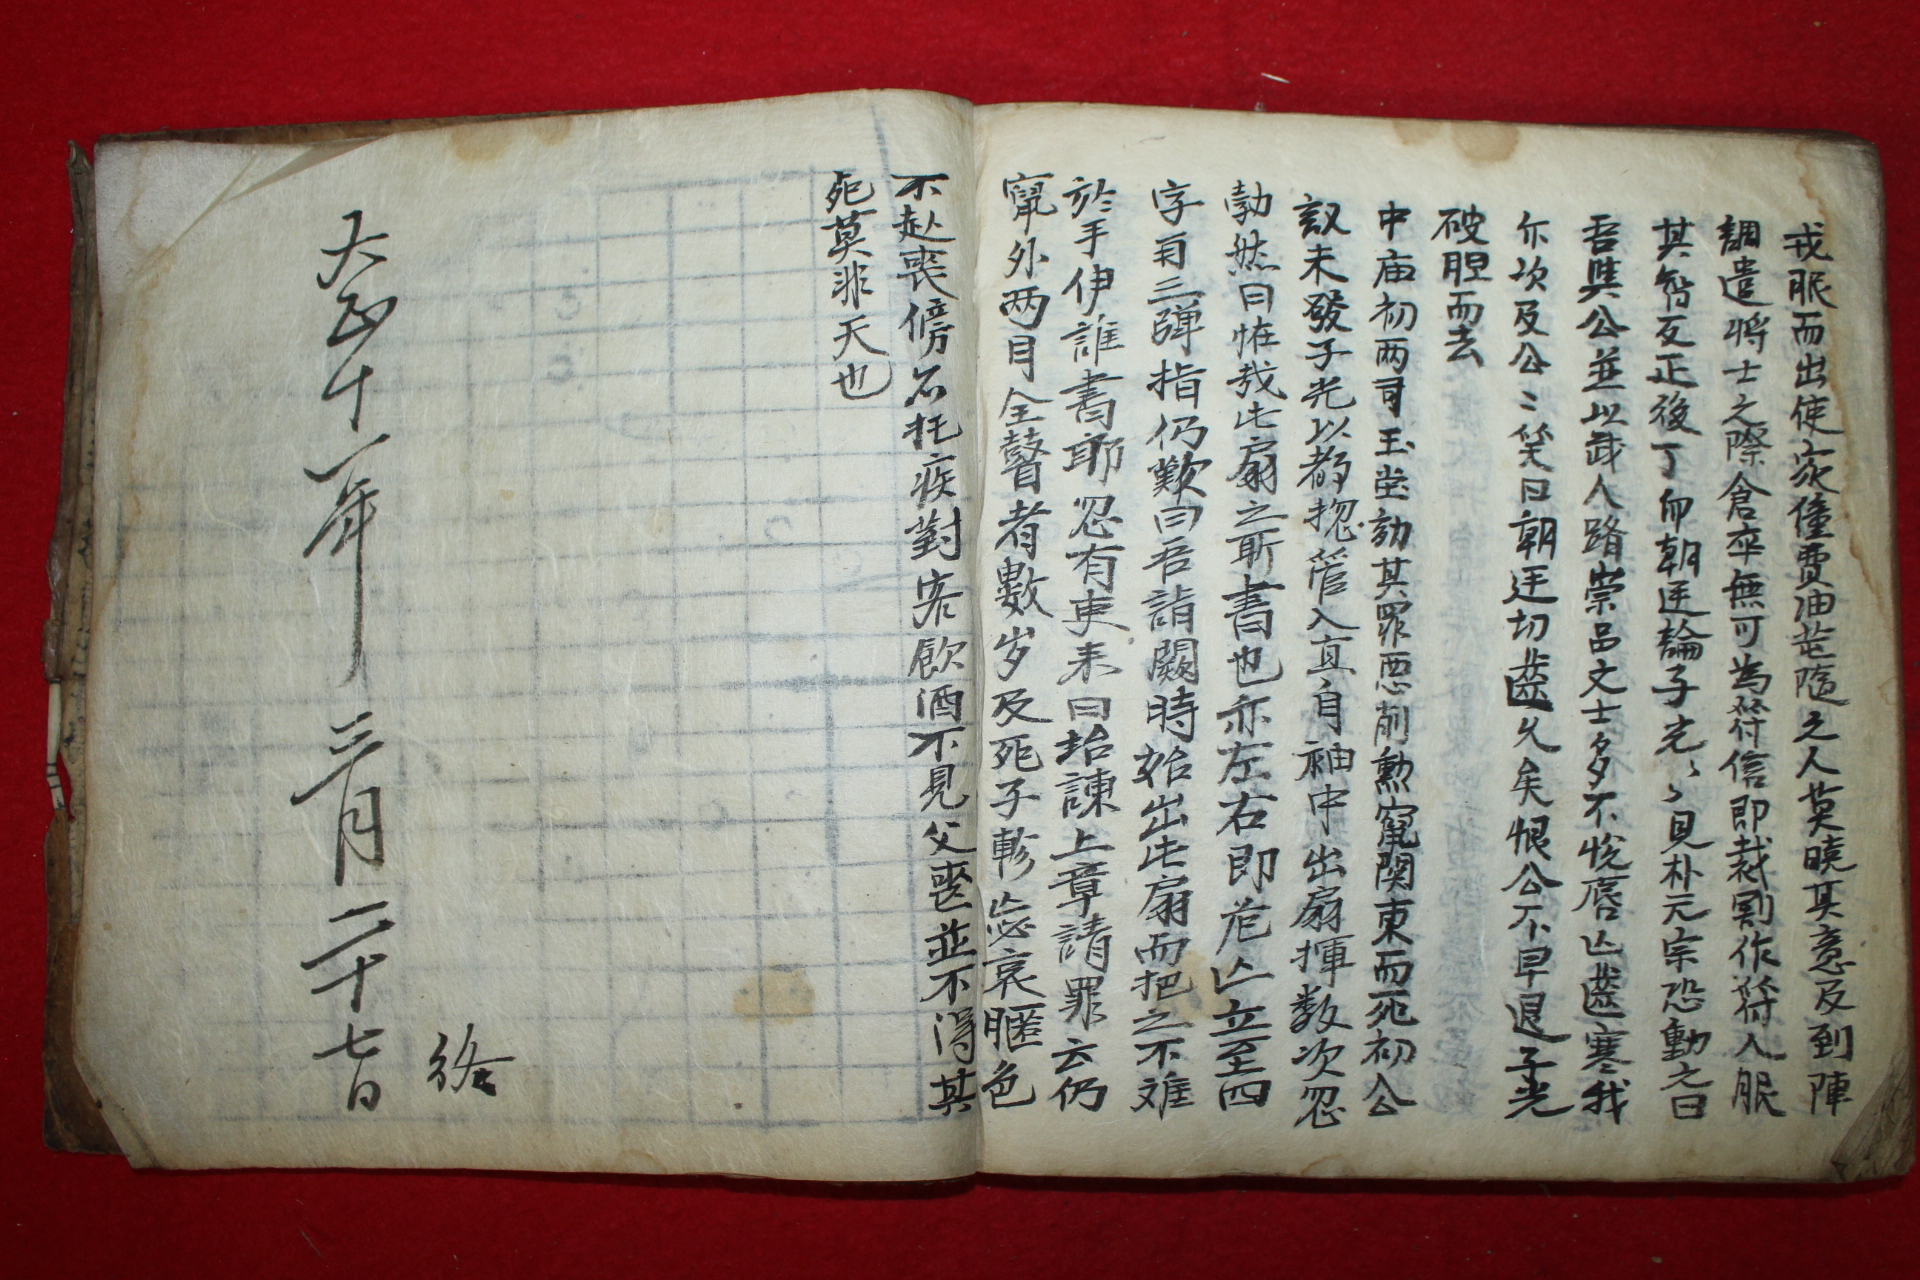 戎服而出使家僮賣油芚隨之人莫曉其意及到陣
調遣將士之際倉卒無可為符信即裁割作符人服
其智反正後丁卯朝廷論子光〻見朴元宗恐動之曰
吾與公並以武人路崇品文士多不悅唇亡齒寒我
尒次及公〻笑曰朝廷切齒久矣恨公不早退子光
破胆而去
中庙初两司玉堂劾其罪悪削勲竄関東而死初公
訤未發子光以都揔管入直自袖中出扇揮数次忽
勃然曰怪哉此扇之所書也亦左右即 亡立至四
字自三彈指仍歎曰吾詣闕時始出此扇而把之不难
於手伊誰書耶忽有吏来曰坮諫上章請罪云仍
竄外两目全瞽者數岁及死子軫 哀 色
不赴喪傍 托疾對客飲酒不見父喪並不得其
死莫非天也
大正十一年 三月二十七日
終